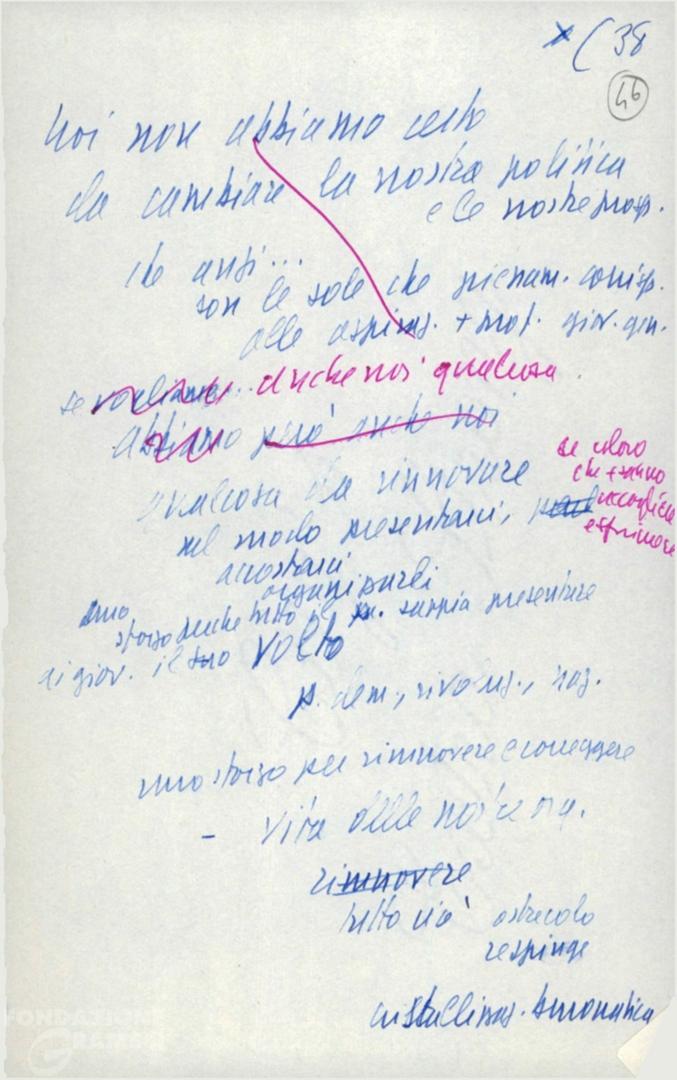 x (38
46
Noi non abbiamo certo
da cambiare la nostra politica
e le nostre prosp.
che anzi...
son le sole che pienam. corrisp.
alle aspiraz. + prof. giov. gen.
se vogliamo.. anche noi qualcosa
abbiamo però anche noi
qualcosa da rinnovare
nel modo presentarci,
se coloro
che + sanno
accogliere
esprimere
accostarci
organizzarli
uno
sforzo anche tutto il p. sappia presentare
ai giov. il suo volto
p. dem., rivoluz., naz.
uno sforzo per rimuovere e correggere
- vita delle nostre org.
rimuovere
tutto ciò ostacolo
respinge
cristallizzaz.
FONDAZIONE
GRAMSCI